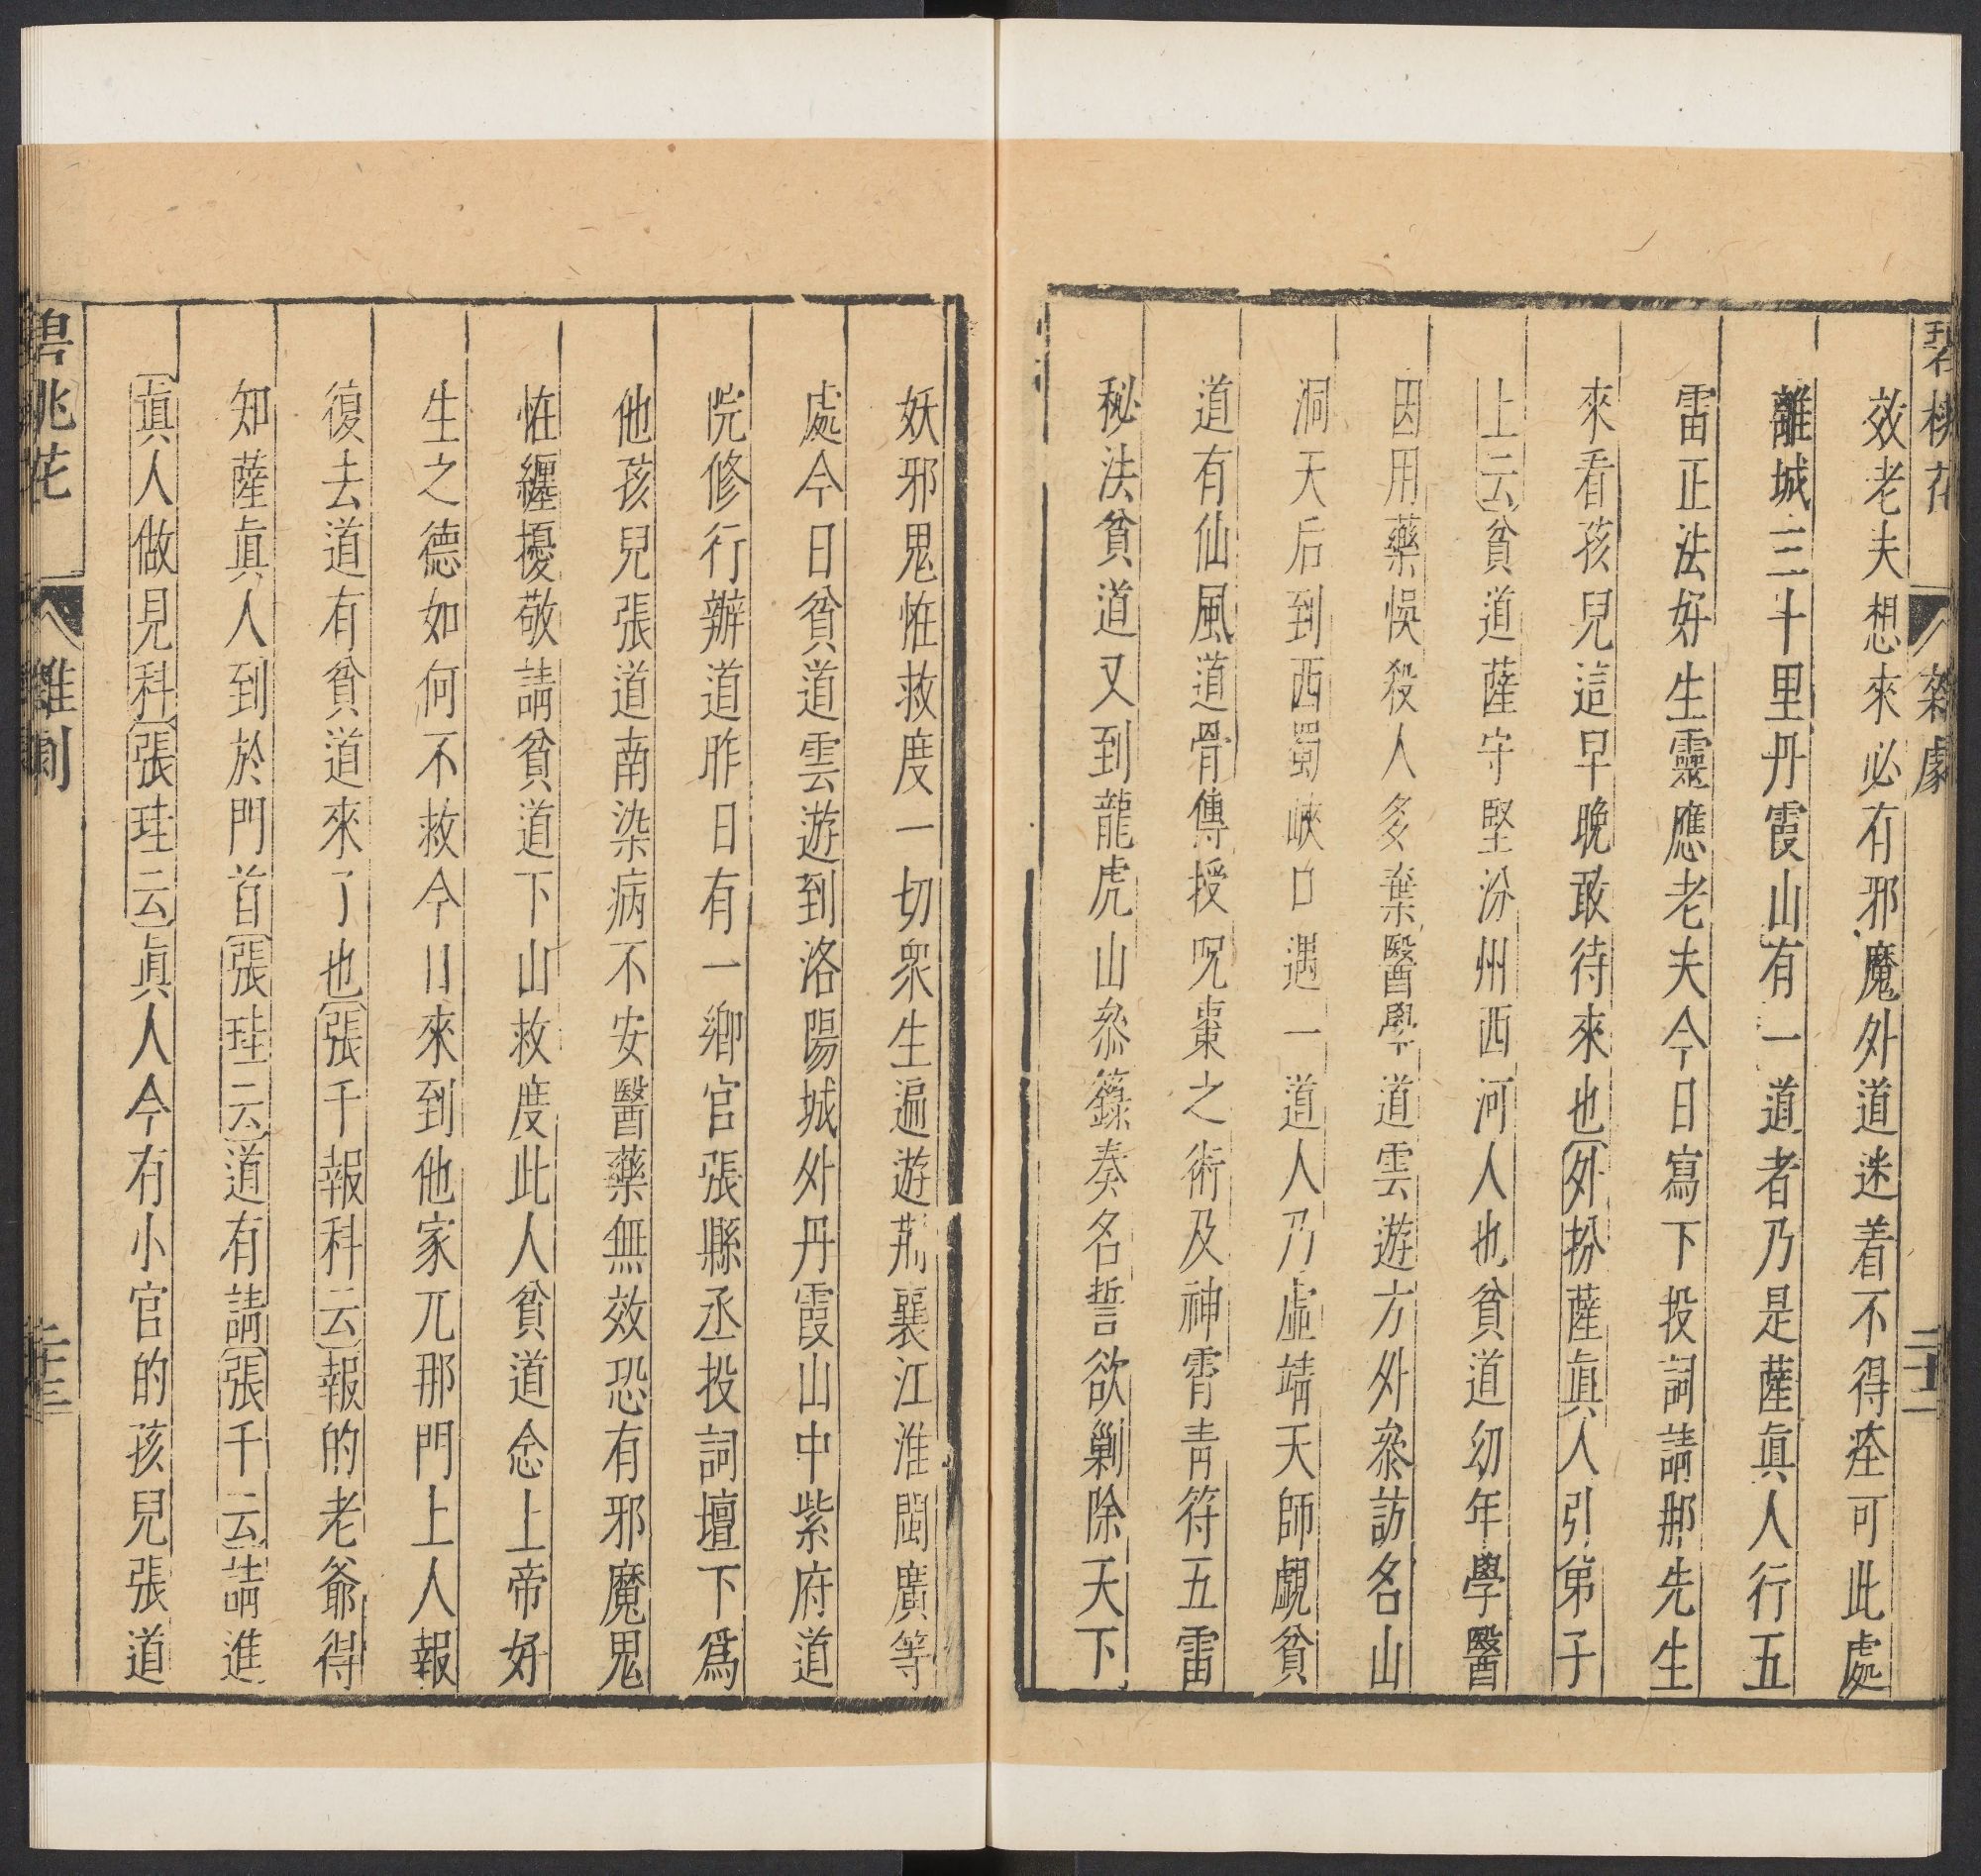 碧桃花 雜劇 二十二
效老夫想來必有邪魔外道迷着不得痊可此處
離城三十里丹霞山有一道者乃是薩眞人行五
雷正法好生靈應老夫今日寫下投詞請那先生
來看孩兒這早晚敢待來也〔外扮薩眞人引弟子
上云〕貧道薩守堅汾州西河人也貧道幼年學醫
因用藥悞殺人多棄醫學道雲遊方外叅訪名山
洞天后到西蜀峽口遇一道人乃虛靖天師覷貧
道有仙風道骨傳授呪棗之術及神霄青符五雷
秘法貧道又到龍虎山叅籙奏名誓欲剿除天下
妖邪鬼恠救度一切衆生遍遊荊襄江淮閩廣等
處今日貧道雲遊到洛陽城外丹霞山中紫府道
院修行辦道昨日有一鄉官張縣丞投詞壇下爲
他孩兒張道南染病不安醫藥無效恐有邪魔鬼
恠纏擾敬請貧道下山救度此人貧道念上帝好
生之德如何不救今日來到他家兀那門上人報
復去道有貧道來了也〔張千報科云〕報的老爺得
知薩眞人到於門首〔張珪云〕道有請〔張千云〕請進
〔眞人做見科〕〔張珪云〕眞人今有小官的孩兒張道
碧桃花 雜劇 二十三